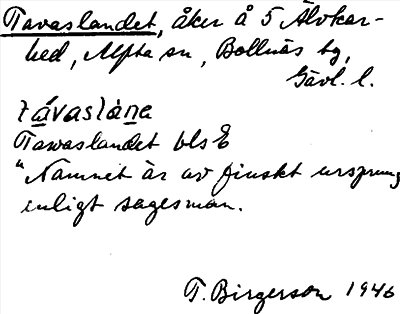 Tavaslandet, åker å 5 Älvkar-
hed, Alfta sn, Bollnäs tg,
Gävl. l.
távaslàna
Tawaslandet bls E
"Namnet är av finskt ursprung
enligt sagesman.
T. Birgerson 1946